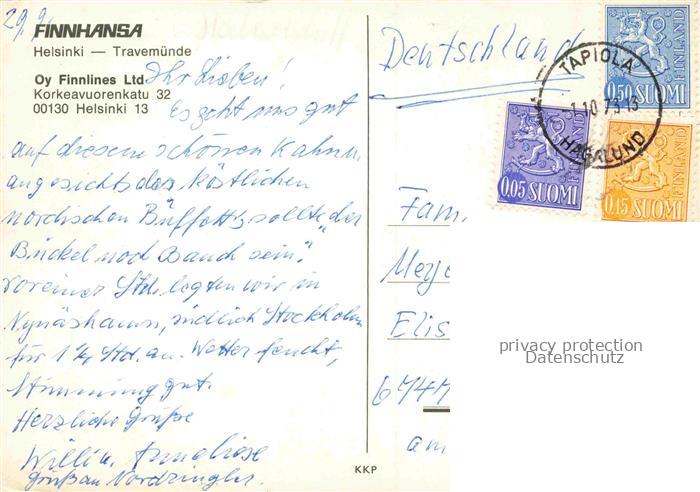 29.9.
FINNHANSA
Helsinki — Travemünde
Oy Finnlines Ltd
Korkeavuorenkatu 32
00130 Helsinki 13
Ihr Lieben!
Es geht uns gut
auf diesem schönen Kahn u.
angesichts des köstlichen
nordischen Büffetts sollte „der
Buckel noch Bauch sein".
Vor einer Std. legten wir in
Nynäshamn, südlich Stockholm
für 1 ½ Std. an. Wetter feucht,
Stimmung gut.
Herzliche Grüße
Willi u. Anneliese
Gruß an
KKP
Deutschland
FINLAND
0,50 SUOMI
TAPIOLA
1.10.73.13
HAGALUND
FINLAND
0,05 SUOMI
FINLAND
0,15 SUOMI
Fam.
Meye
Elis
674
am
privacy protection
Datenschutz